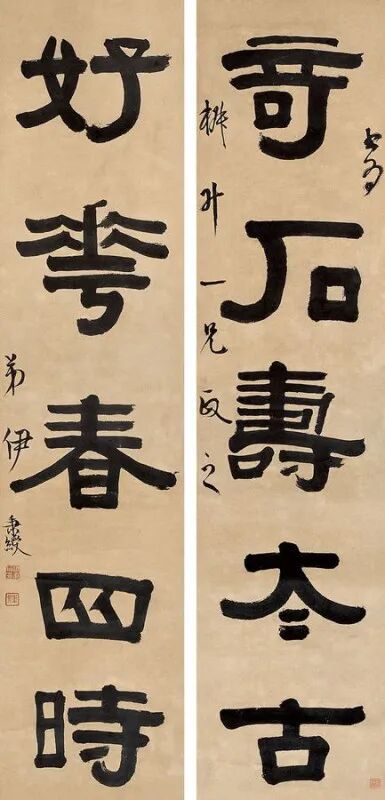 書為
奇石壽太古
升一兄政之
好華春四時
弟伊秉綬